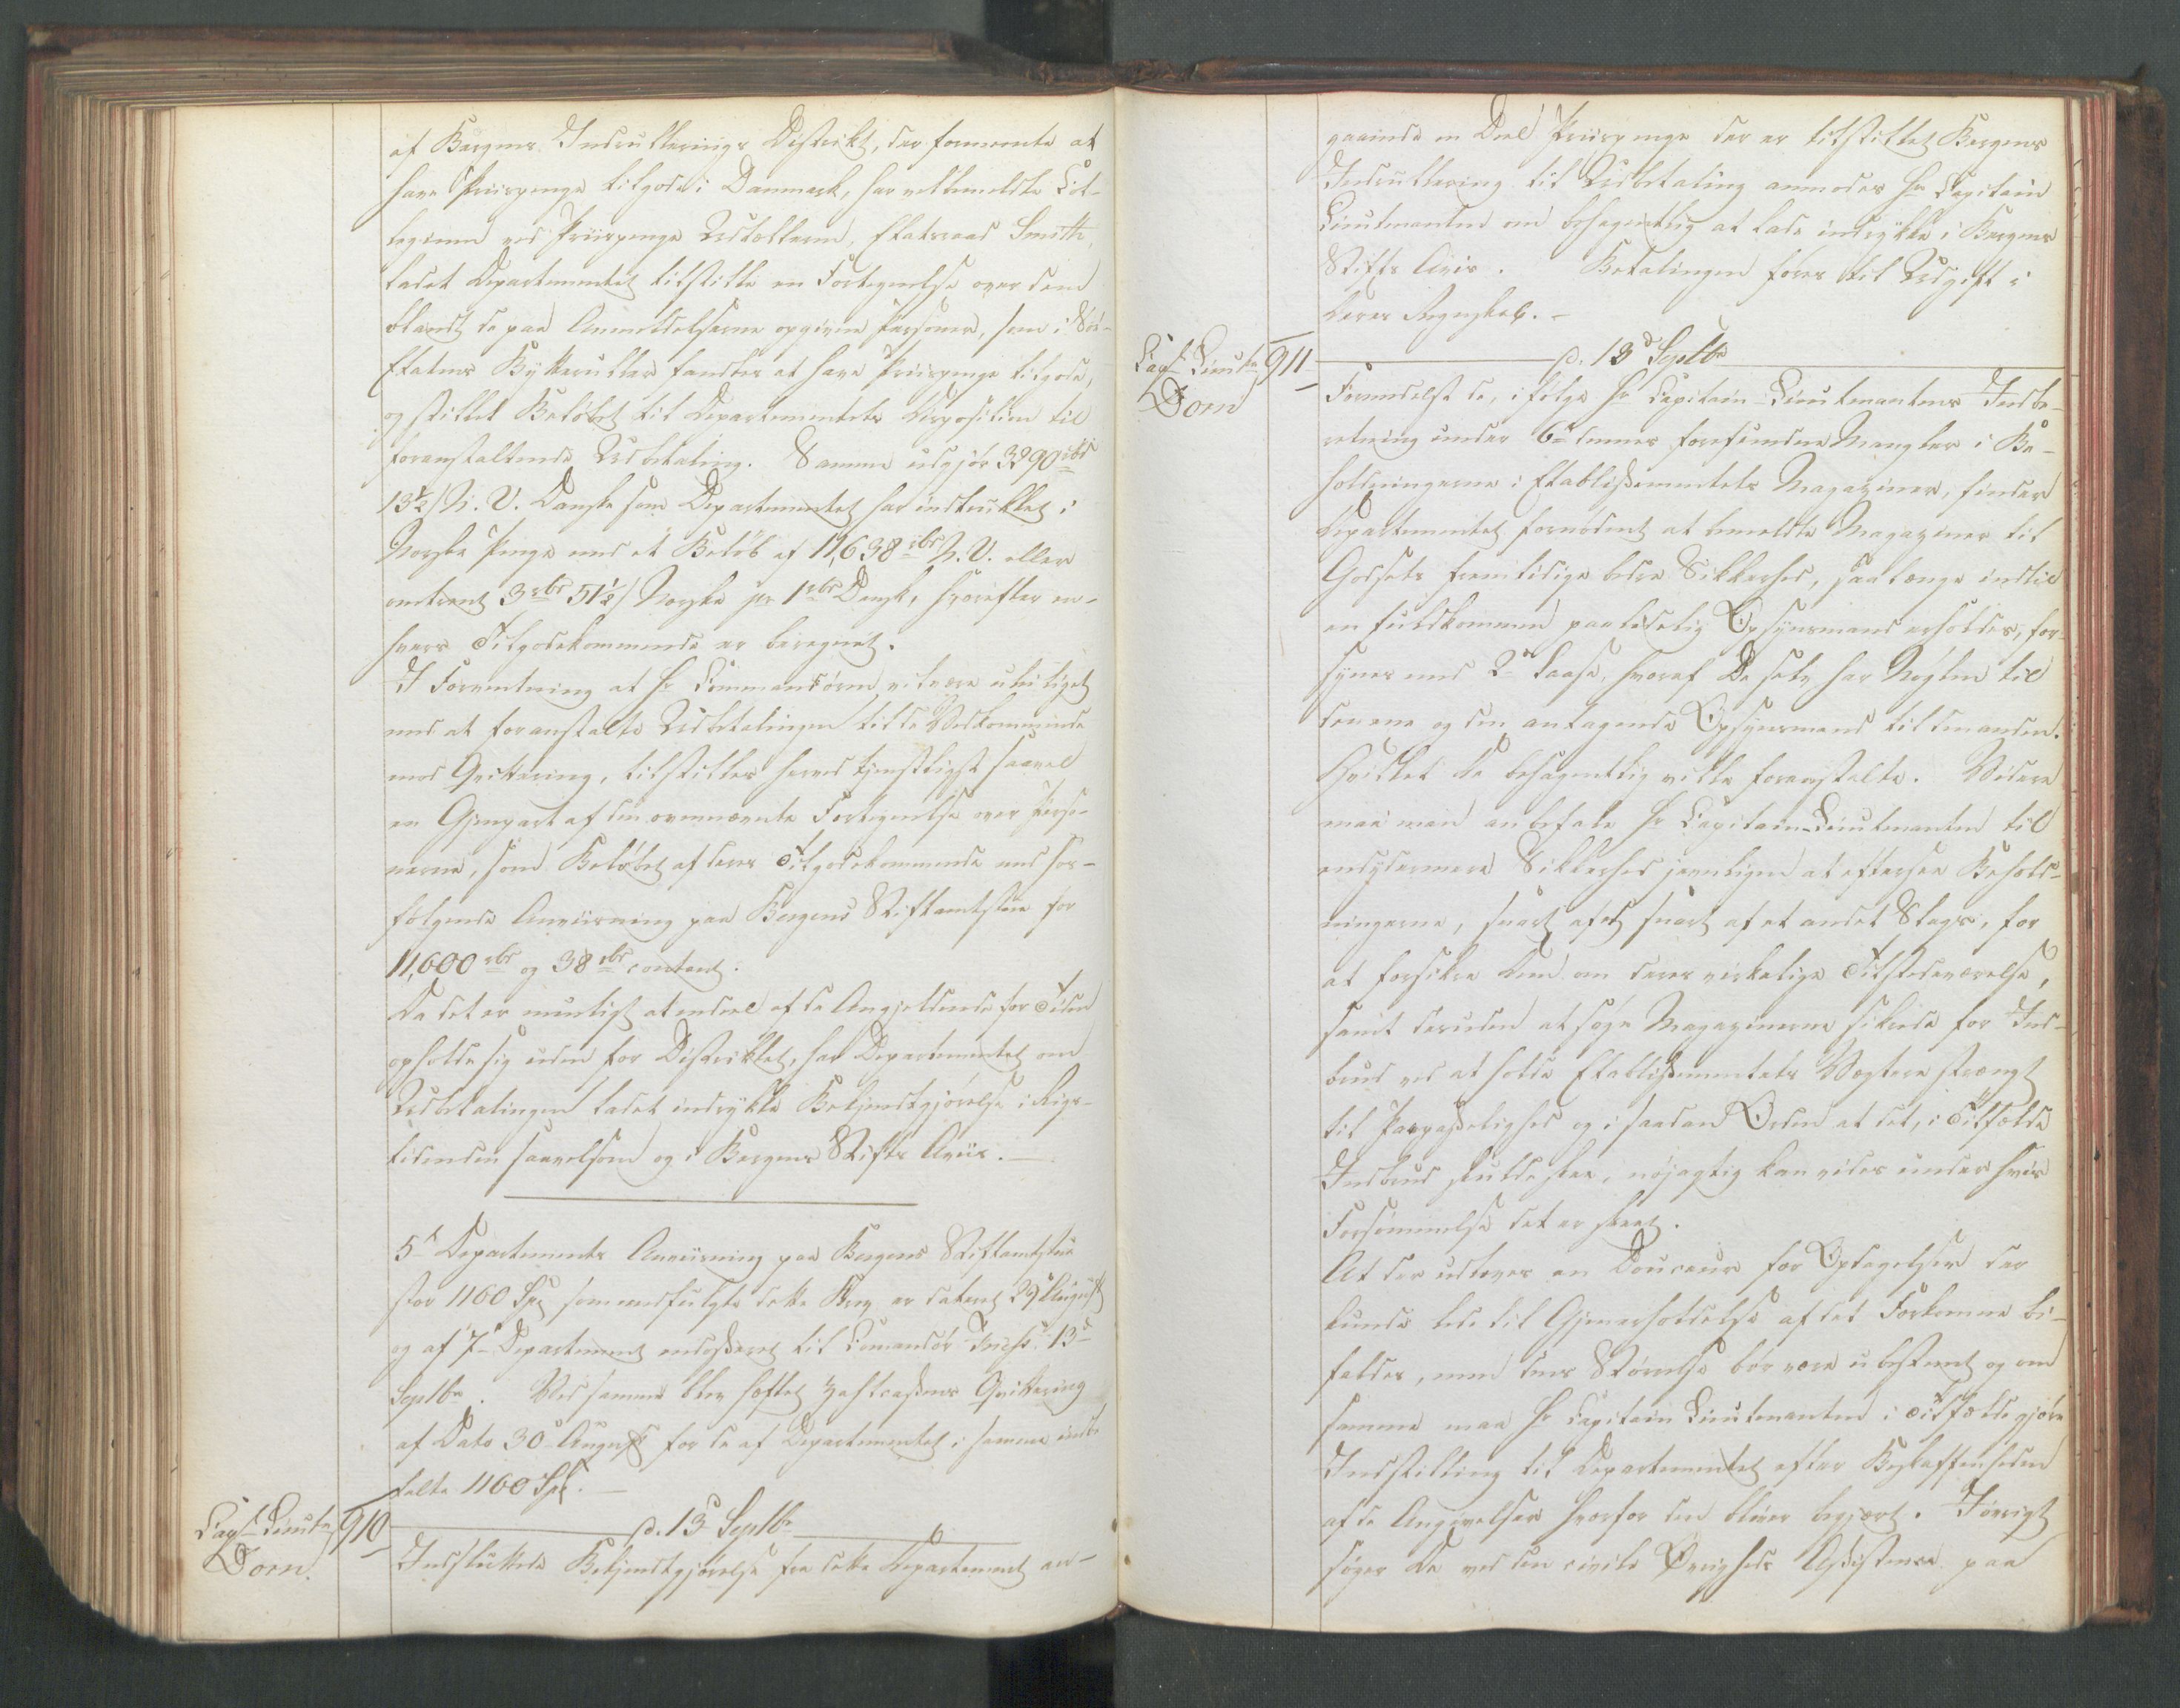 af Bergens Indrullerings Distrikt, der formeente at
have Priispenge tilgode i Danmark, har velbemeldte Col-
legium ved Priispenge Udtælleren, Etatsraad Smith,
ladet Departementet tilstille en Fortegnelse over dem
blandt de paa Anmeldelserne opgivne Personer, som i Søe-
Etatens Bytteruller fandtes at have Priispenge tilgode,
og stillet Beløbet til Departementets Disposition til
foranstaltende Udbetaling. Samme udgjør 3290 rbd
13½ s N. V. Danske som Departementet har indtrukket i
Norske Penge med et Beløb af 11,638 rbd N. V. eller
omtrent 3 rbd 51½ s Norske pr 1 rbd Dansk, hvorefter en-
hvers Tilgodekommende er beregnet.
I Forventning at Hr Commandøren vil være uleiliget
med at foranstalte Udbetalingen til de Vedkommende
mod Qvittering, tilstilles herved tjenstligst saavel
en Gjenpart af den ovennævnte Fortegnelse over Perso-
nerne, som Beløbet af deres Tilgodekommende med hos-
følgende Anviisning paa Bergens Stiftamtstue for
11,600 rbd og 38 rbd contant.
Da det er mueligt at endeel af de Angjeldende for Tiden
opholde sig uden for Distriktet, har Departementet om
Udbetalingen ladet indrykke Bekjendtgjørelse i Rigs-
tidenden saavelsom og i Bergens Stifts Aviis.
5te Departements Anviisning paa Bergens Stiftamtstue
stor 1160 Spd som medfulgte dette Brev er dateret 29 August
og af 7de Departement endosseret til Comandør 13de
Septbr. Ved samme blev hæftet Zahlcassens Qvittering
af Dato 30 August for de af Departementet i samme indbe
talte 1160 Spd.
Capt Lieutn 910 d. 13 Septbr
Dorn.
Indsluttede Bekjendtgjørelse fra dette Departement an-
gaaende en Deel Priispenge der er tilstillet Bergens
Indrullering til Udbetaling anmodes Hr Capitain
Lieutenanten om behageligt at lade indrykke i Bergens
Stifts Avis. Betalingen føres til Udgift i
deres Regnskab.
Capt Lieutn 911 d. 13de Septbr
Dorn
Formedelst de, i følge Hr Capitain Lieutenantens Indbe-
retning under 6te dennes forefundne Mangler i Be-
holdningerne i Etablissementets Magaziner, finder
Departementet fornødent at bemeldte Magaziner til
Godsets fremtidige bedre Sikkerhed, saalænge indtil
en fuldkommen paalidelig Opsynsmand erholdes, for-
synes med 2de Laase, hvoraf De selv har Nøglen til
den ene og den antagende Opsynsmand til den anden.
Hvilket De behageligt ville foranstalte. Videre
maa man anbefale Hr Capitain-Lieutenanten til
endydermere Sikkerhed jevnligen at eftersee Behold-
ningerne, snart af et snart af et andet Slags, for
at forsikre Dem om deres virkelige Tilstedeværelse,
samt desuden at søge Magazinerne sikrede for Ind-
brud ved at holde Etablissementets Vægtere strengt
til Paapasselighed og i saadan Orden at det, i Tilfælde
Indbrud skulde skee, nøjagtig kan vides under hvis
Forsømmelse det er skeet.
At der udloves en Douceur for Opdagelsen der
kunde lede til Gjenerholdelse af det Forkomne bi-
faldes, men dens Størrelse bør være ubestemt og om
samme maa Hr Capitain Lieutenanten i Tilfælde gjøre
Indstilling til Departementet efter Beskaffenheden
af de Angivelser hvorfor den bliver begjært. Iøvrigt
søger De ved den civile Øvrigheds Assistence paa